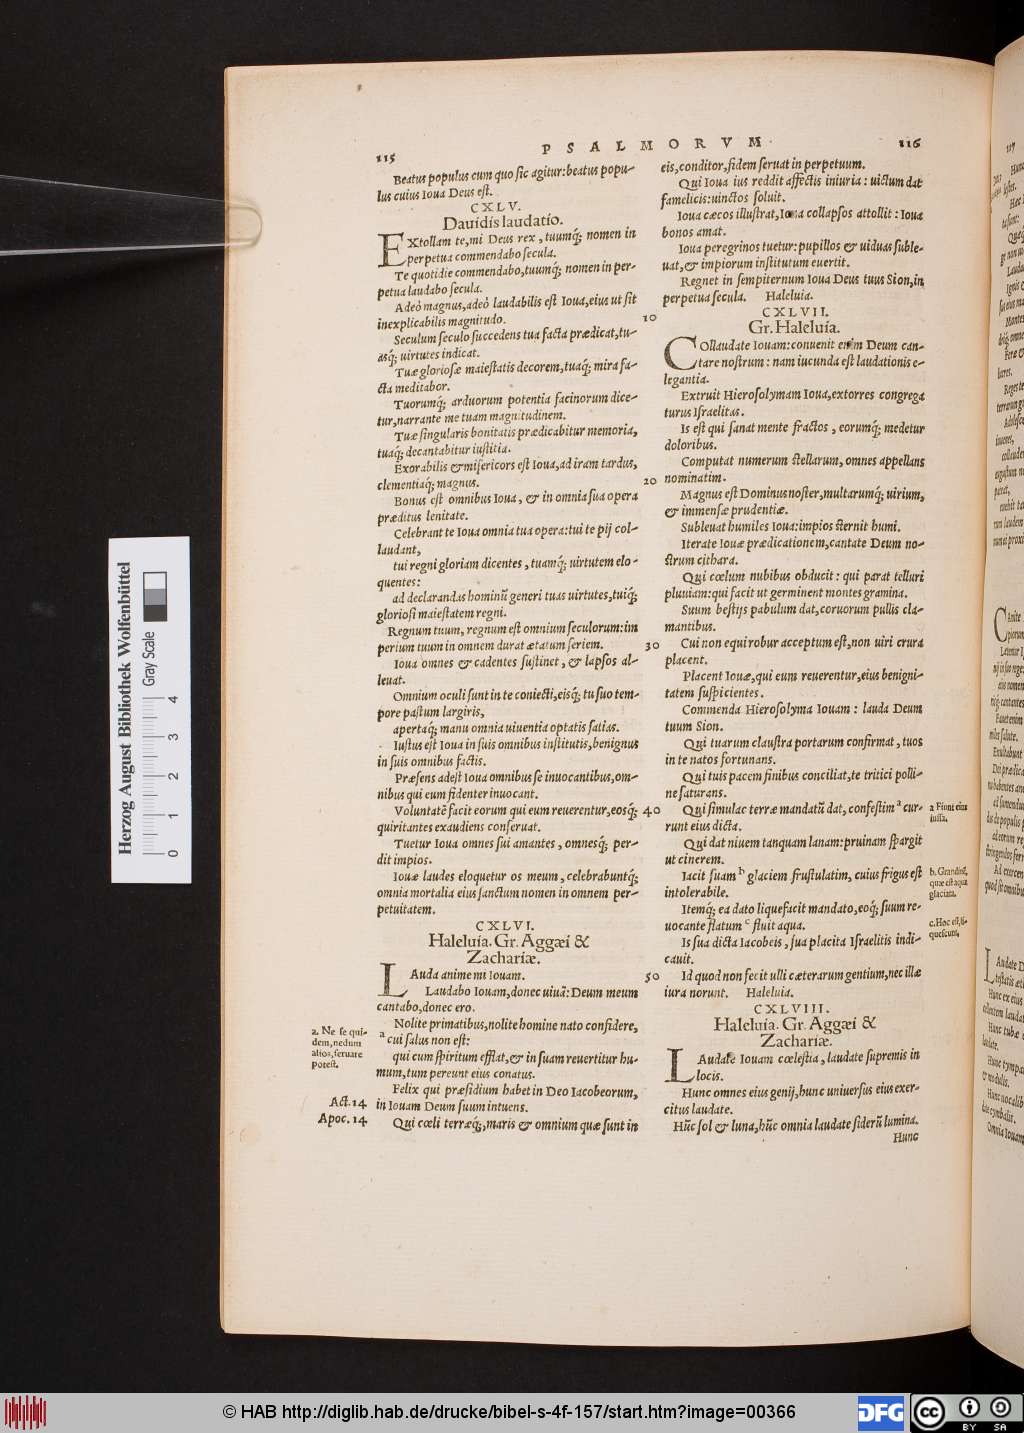 PSALMORVM
115
116
Beatus populus cum quo sic agitur: beatus popu-
lus cuius Ioua Deus est.
CXLV.
Dauidis laudatio.
EXtollam te, mi Deus rex, tuumq́; nomen in
perpetua commendabo secula.
Te quotidie commendabo, tuumq́; nomen in per-
petua laudabo secula.
Adeò magnus, adeò laudabilis est Ioua, eius ut sit
inexplicabilis magnitudo.
Seculum seculo succedens tua facta prædicat, tu-
asq́; uirtutes indicat.
Tuæ gloriosæ maiestatis decorem, tuaq́; mira fa-
cta meditabor.
Tuorumq́; arduorum potentia facinorum dice-
tur, narrante me tuam magnitudinem.
Tuæ singularis bonitatis prædicabitur memoria,
tuaq́; decantabitur iustitia.
Exorabilis & misericors est Ioua, ad iram tardus,
clementiaq́; magnus.
Bonus est omnibus Ioua, & in omnia sua opera
præditus lenitate.
Celebrant te Ioua omnia tua opera: tui te pij col-
laudant,
tui regni gloriam dicentes, tuamq́; uirtutem elo-
quentes:
ad declarandas hominũ generi tuas uirtutes, tuiq́;
gloriosi maiestatem regni.
Regnum tuum, regnum est omnium seculorum: im
perium tuum in omnem durat ætatum seriem.
Ioua omnes & cadentes sustinet, & lapsos al-
leuat.
Omnium oculi sunt in te coniecti, eisq́; tu suo tem-
pore pastum largiris,
apertaq́; manu omnia uiuentia optatis satias.
Iustus est Ioua in suis omnibus institutis, benignus
in suis omnibus factis.
Præsens adest Ioua omnibus se inuocantibus, om-
nibus qui eum fidenter inuocant.
Voluntatẽ facit eorum qui eum reuerentur, eosq́;
quiritantes exaudiens conseruat.
Tuetur Ioua omnes sui amantes, omnesq́; per-
dit impios.
Iouæ laudes eloquetur os meum, celebrabuntq́;
omnia mortalia eius sanctum nomen in omnem per-
petuitatem.
CXLVI.
Haleluia. Gr. Aggæi &
Zachariæ.
LAuda anime mi Iouam.
Laudabo Iouam, donec uiuã: Deum meum
cantabo, donec ero.
Nolite primatibus, nolite homine nato confidere,
a cui salus non est:
qui cum spiritum efflat, & in suam reuertitur hu-
mum, tum pereunt eius conatus.
Felix qui præsidium habet in Deo Iacobeorum,
in Iouam Deum suum intuens.
Qui cœli terræq́;, maris & omnium quæ sunt in
a. Ne se qui-
dem, nedum
alios, seruare
potest.
Act. 14
Apoc. 14
10
20
30
40
50
eis, conditor, fidem seruat in perpetuum.
Qui Ioua ius reddit affectis iniuria: uictum dat
famelicis: uinctos soluit.
Ioua cæcos illustrat, Ioua collapsos attollit: Ioua
bonos amat.
Ioua peregrinos tuetur: pupillos & uiduas suble-
uat, & impiorum institutum euertit.
Regnet in sempiternum Ioua Deus tuus Sion, in
perpetua secula. Haleluia.
CXLVII.
Gr. Haleluia.
COllaudate Iouam: conuenit enim Deum can-
tare nostrum: nam iucunda est laudationis e-
legantia.
Extruit Hierosolymam Ioua, extorres congrega
turus Israelitas.
Is est qui sanat mente fractos, eorumq́; medetur
doloribus.
Computat numerum stellarum, omnes appellans
nominatim.
Magnus est Dominus noster, multarumq́; uirium,
& immensæ prudentiæ.
Subleuat humiles Ioua: impios sternit humi.
Iterate Iouæ prædicationem, cantate Deum no-
strum cithara.
Qui cœlum nubibus obducit: qui parat telluri
pluuiam: qui facit ut germinent montes gramina.
Suum bestijs pabulum dat, coruorum pullis cla-
mantibus.
Cui non equi robur acceptum est, non uiri crura
placent.
Placent Iouæ, qui eum reuerentur, eius benigni-
tatem suspicientes.
Commenda Hierosolyma Iouam: lauda Deum
tuum Sion.
Qui tuarum claustra portarum confirmat, tuos
in te natos fortunans.
Qui tuis pacem finibus conciliat, te tritici polli-
ne saturans.
Qui simulac terræ mandatũ dat, confestim a cur-
runt eius dicta.
Qui dat niuem tanquam lanam: pruinam spargit
ut cinerem.
Iacit suam b glaciem frustulatim, cuius frigus est
intolerabile.
Itemq́; ea dato liquefacit mandato, eoq́; suum re-
uocante flatum c fluit aqua.
Is sua dicta Iacobeis, sua placita Israelitis indi-
cauit.
Id quod non fecit ulli cæterarum gentium, nec illæ
iura norunt. Haleluia.
CXLVIII.
Haleluia. Gr. Aggæi &
Zachariæ.
LAudate Iouam cœlestia, laudate supremis in
locis.
Hunc omnes eius genij, hunc uniuersus eius exer-
citus laudate.
Hũc sol & luna, hũc omnia laudate siderũ lumina.
Hunc
a Fiunt eius
iussa.
b. Grandinẽ,
quæ est aqua
glaciata.
c. Hoc est, li-
quescunt.
Herzog August Bibliothek Wolfenbüttel
Gray Scale
0 1 2 3 4
© HAB http://diglib.hab.de/drucke/bibel-s-4f-157/start.htm?image=00366
DFG
cc BY SA